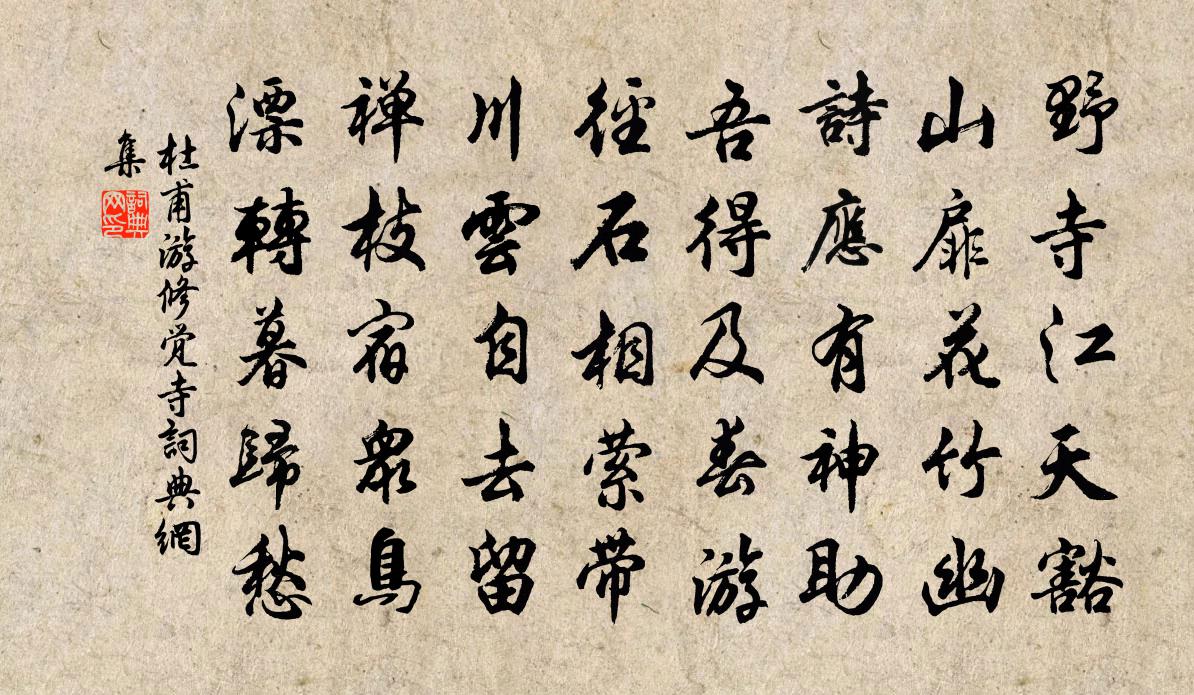 野寺江天豁
山扉花竹幽
詩應有神助
吾得及春游
徑石相縈带
川雲自去留
禅枝宿衆鳥
漂轉暮歸愁
杜甫游修觉寺詞典網
集
詞典
网印